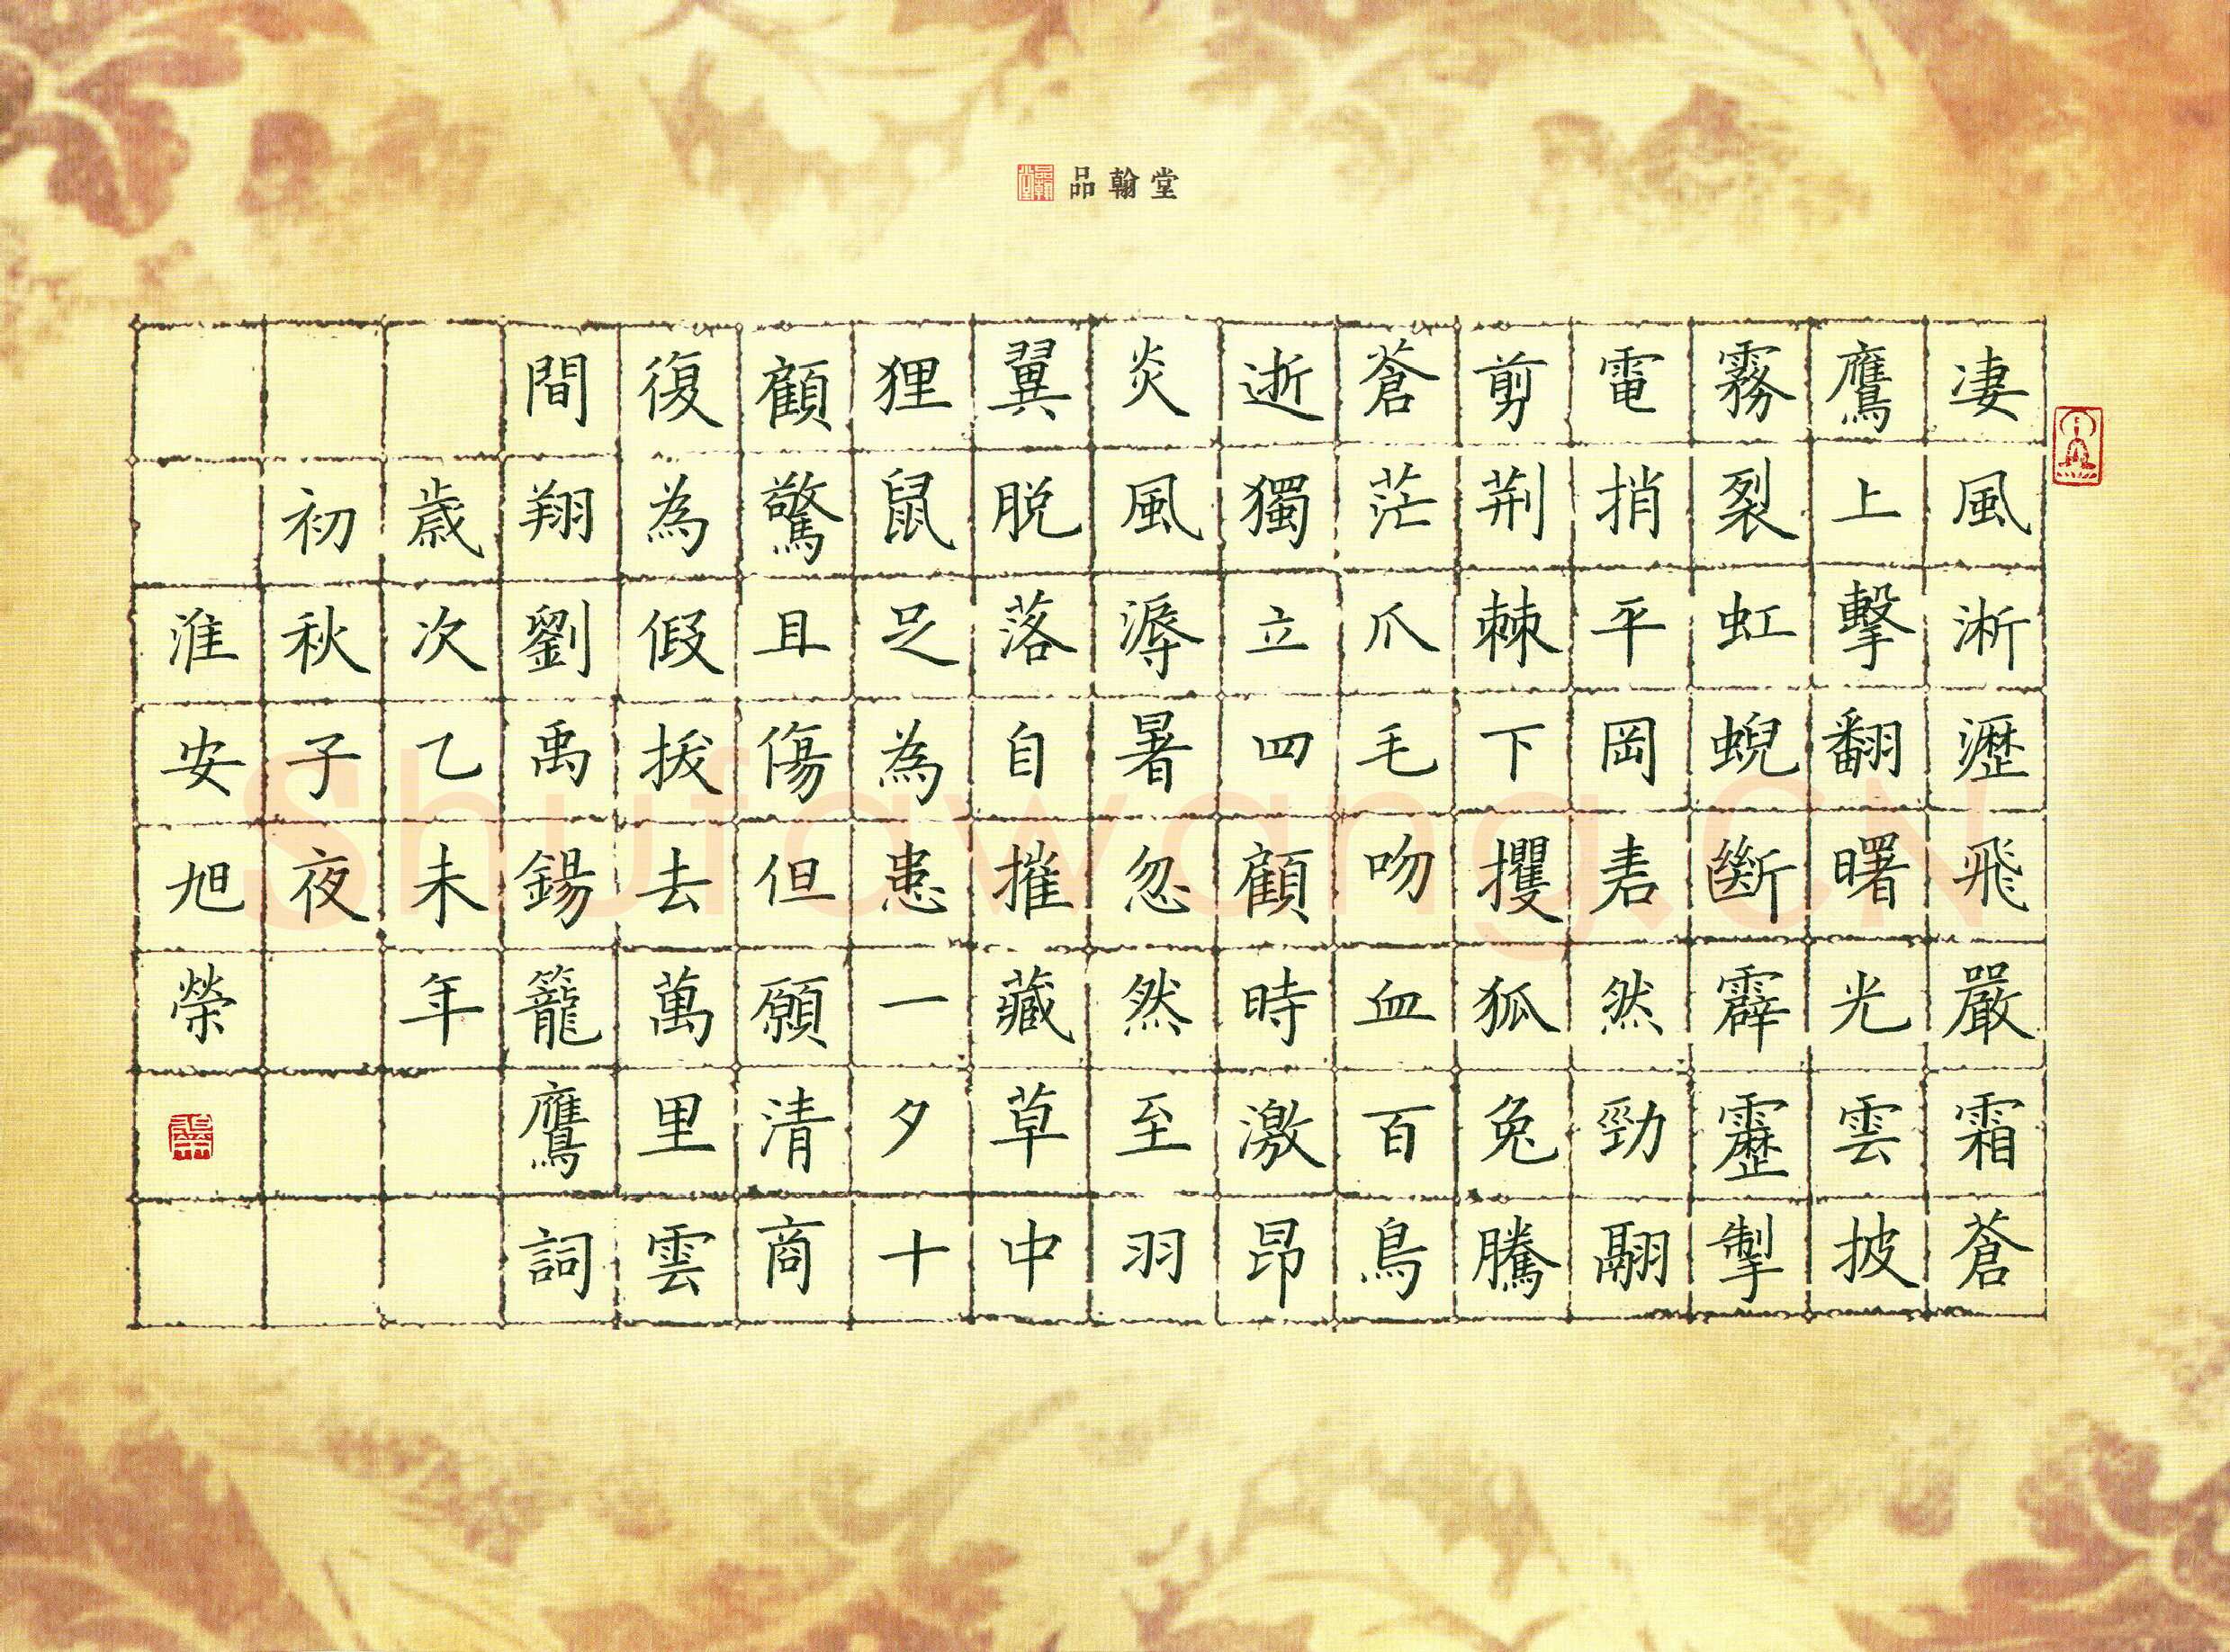 品翰堂
凄風淅瀝飛嚴霜蒼
鷹上擊翻曙光雲披
霧裂虹蜺斷霹靂掣
電捎平岡砉然勁翮
剪荆棘下攫狐兔騰
蒼茫爪毛吻血百鳥
逝獨立四顧時激昂
炎風溽暑忽然至羽
翼脱落自摧藏草中
狸鼠足為患一夕十
顧驚且傷但願清商
復為假拔去萬里雲
間翔劉禹錫籠鷹詞
歲次乙未年
初秋子夜
淮安旭榮
Shufawang.CN